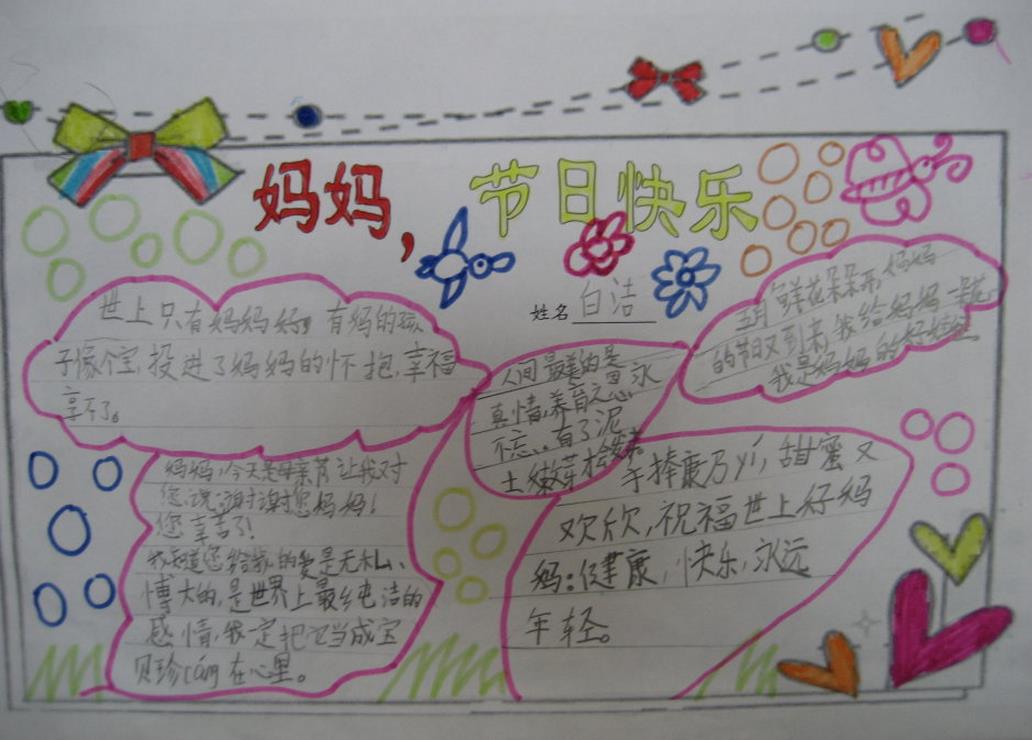 妈妈，节日快乐
姓名 白洁
世上只有妈妈好，有妈的孩
子像个宝，投进了妈妈的怀抱，幸福
享不了。
五月鲜花朵朵开，妈妈
的节日又到来，我给妈妈一朵花，
我是妈妈的好娃娃
人间最美的是
真情，养育之恩永
不忘...有了泥
土嫩芽才会发
手捧康乃yí，甜蜜又
欢欣，祝福世上好妈
妈：健康，快乐，永远
年轻。
妈妈，今天是母亲节，让我对
您说：谢谢您妈妈！
您辛苦了！
我知道您给我的爱是无私、
博大的，是世界上最纯洁的
感情，我一定把它当成宝
贝珍cáng在心里。